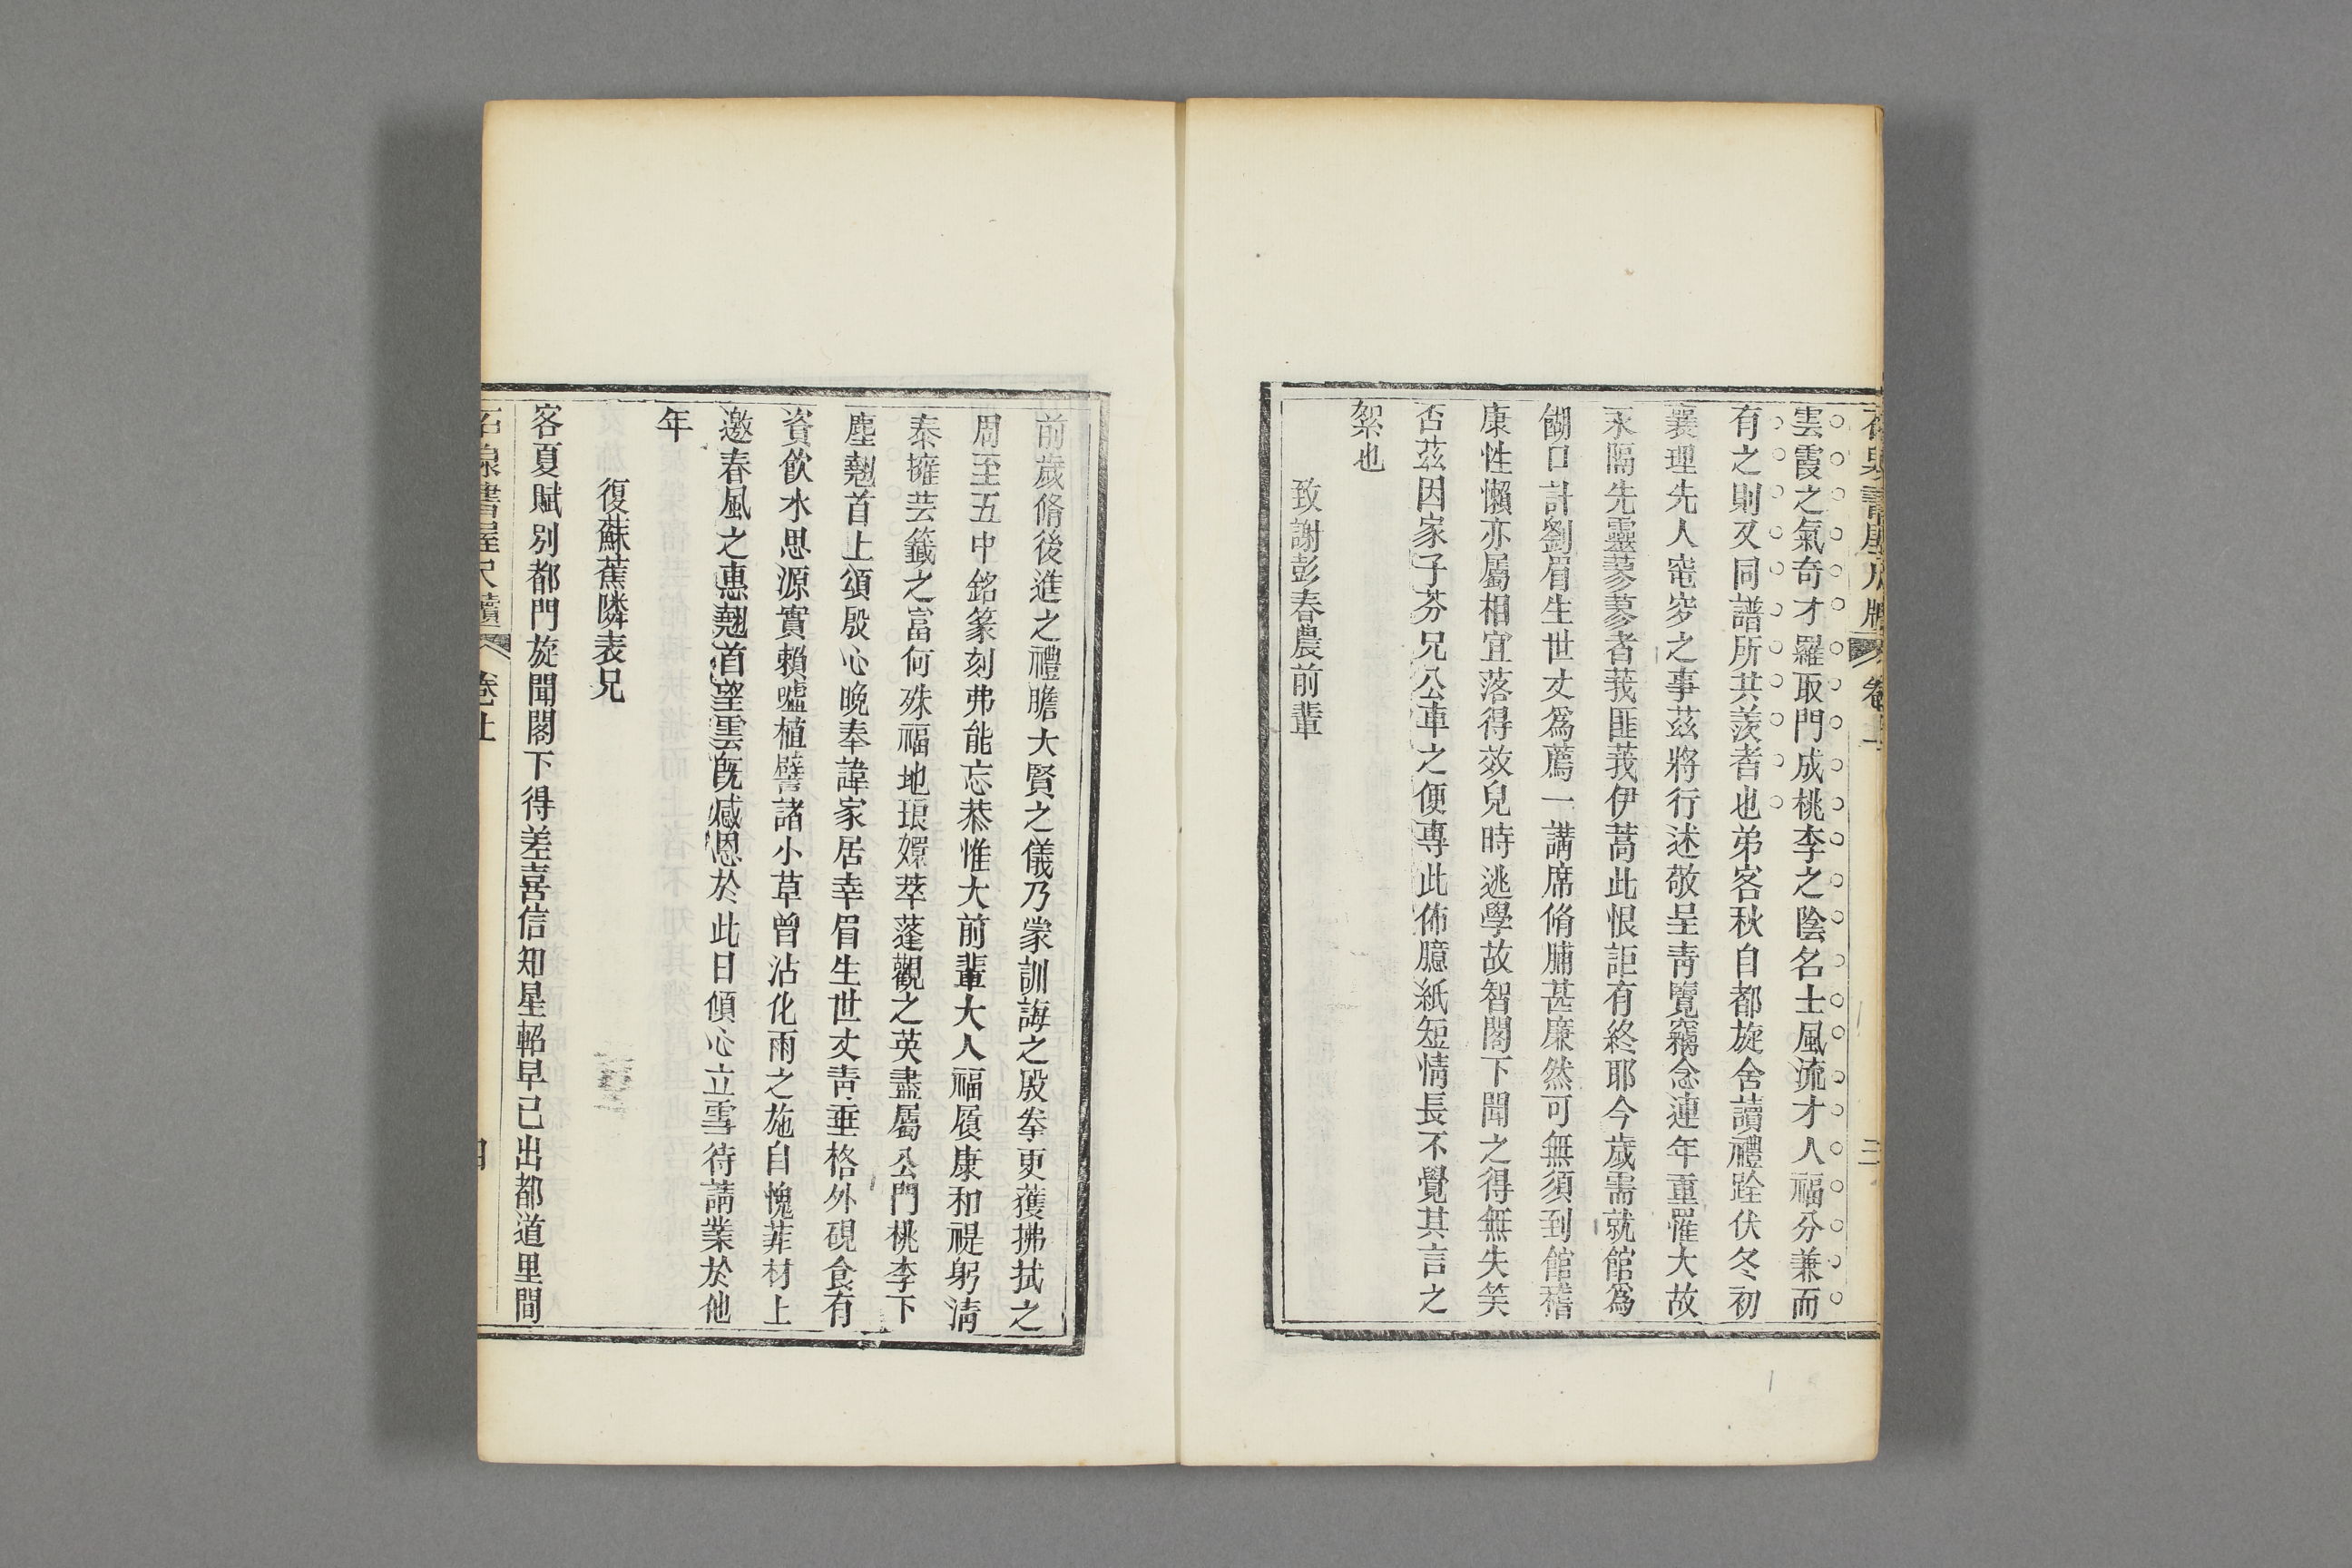 卷上
三
雲霞之氣奇才羅取門成桃李之陰名士風流才人福分兼而
有之則又同譜所共羨者也弟客秋自都旋舍讀禮跧伏冬初
襄理先人窀穸之事茲將行述敬呈靑覽竊念連年重罹大故
永隔先靈蓼蓼者莪匪莪伊蒿此恨詎有終耶今歲需就館爲
餬口計劉眉生世丈爲薦一講席脩脯甚廉然可無須到館稽
康性懶亦屬相宜落得效兒時逃學故智閣下聞之得無失笑
否茲因家子芬兄公車之便專此佈臆紙短情長不覺其言之
絮也
致謝彭春農前輩
前歲脩後進之禮瞻大賢之儀乃蒙訓誨之殷拳更獲拂拭之
周至五中銘篆刻弗能忘恭惟大前輩大人福履康和禔躬淸
泰擁芸籤之富何殊福地琅嬛萃蓬觀之英盡屬公門桃李下
塵翹首上頌殷心晚奉諱家居幸眉生世丈靑垂格外硯食有
資飲水思源實賴噓植譬諸小草曾沾化雨之施自愧菲材上
邀春風之惠翹首望雲旣感恩於此日傾心立雪待請業於他
年
復蘇蕉隣表兄
客夏賦別都門旋聞閣下得差喜信知星軺早已出都道里間
書屋尺牘 卷上